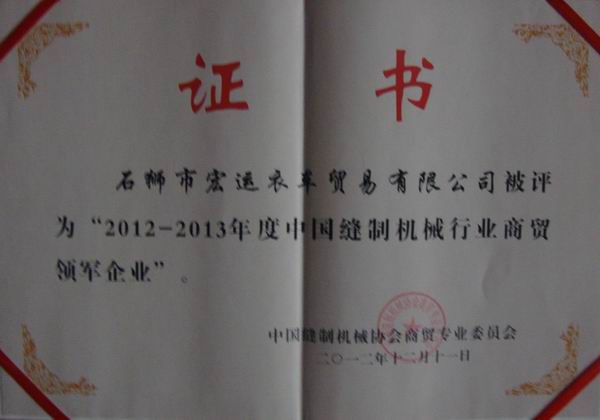 证书
石狮市宏运衣车贸易有限公司被评
为“2012-2013年度中国缝制机械行业商贸
领军企业”。
中国缝制机械协会商贸专业委员会
二〇一二年十二月十一日